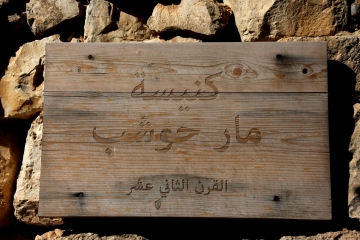 كنيسة
مار حوشب
القرن الثاني عشر